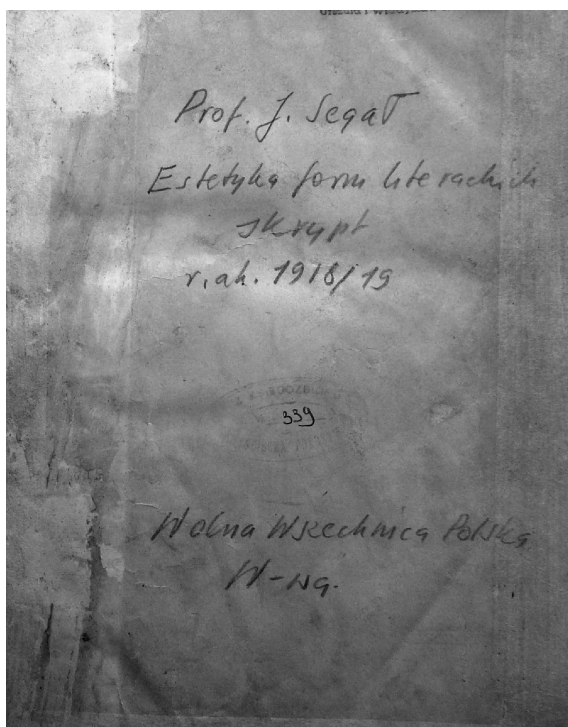 Prof. J. Segał
Estetyka form literackich
skrypt
r. ak. 1918/19
339
Wolna Wszechnica Polska
W-wa.